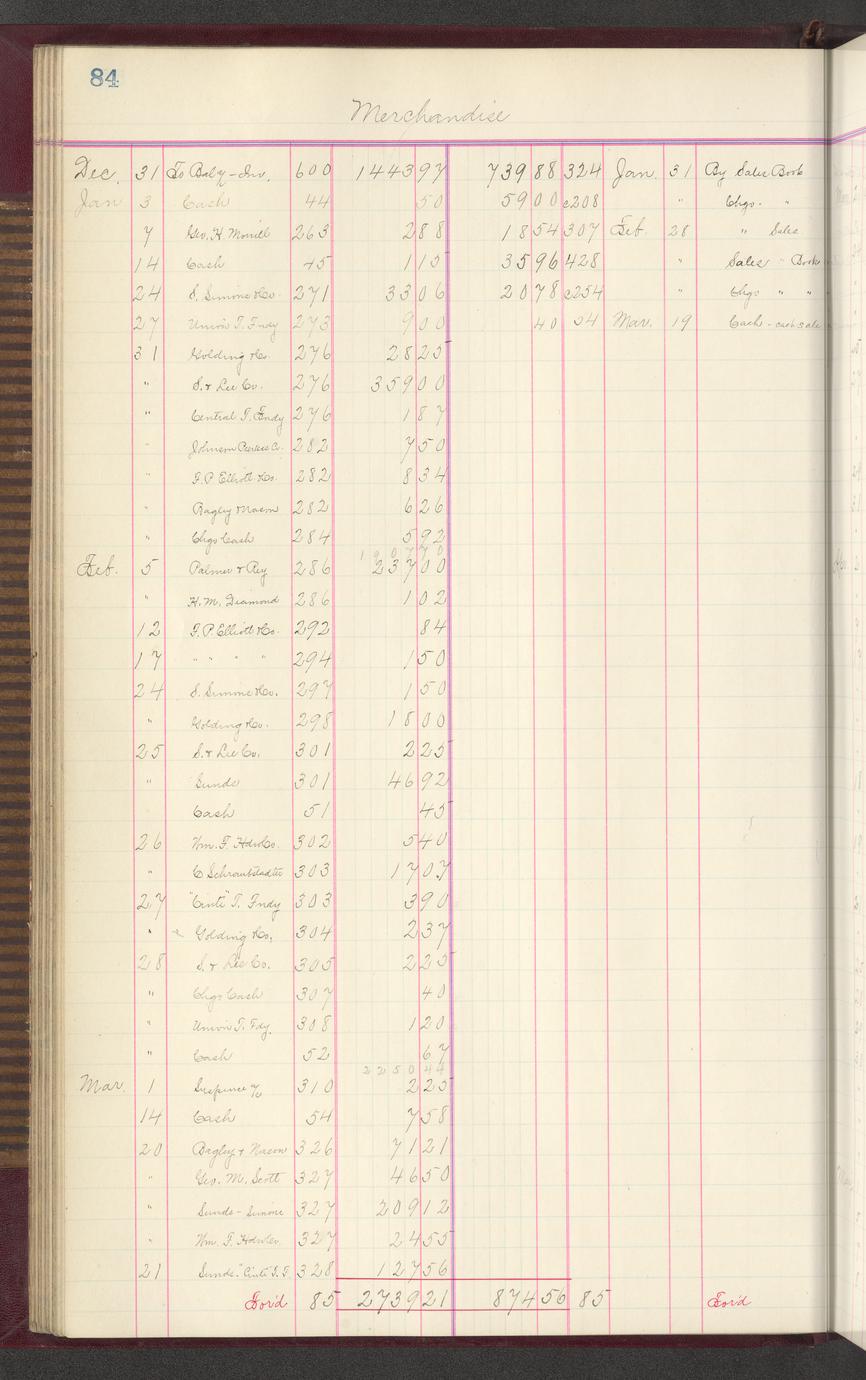 84
Merchandise
Dec. 31 To Bal'y - Inv. 600 1443 97 739 88 324 Jan. 31 By Sales Book
Jan 3 Cash 44 50 59 00 c208 " Chgs. "
7 Geo. H. Morrill 263 2 88 18 54 307 Feb. 28 " Sales
14 Cash 45 1 15 35 96 428 " Sales " Book
24 S. Simons & Co. 271 33 06 20 78 c254 " Chgs " "
27 Union T. Fndy 273 9 00 40 54 Mar. 19 Cash - cash sale
31 Golding & Co. 276 28 25
" S. & Lee Co. 276 359 00
" Central T. Fndy 276 1 87
" Johnson Peerless Co. 282 7 50
" F. P. Elliott & Co. 282 8 34
" Bagley & Nason 282 6 26
" Chgs Cash 284 5 92
1907 70
Feb. 5 Palmer & Rey 286 237 00
" H. M. Diamond 286 1 02
12 F. P. Elliott & Co. 292 84
17 " " " " 294 1 50
24 S. Simons & Co. 297 1 50
" Golding & Co. 298 18 00
25 S. & Lee Co. 301 2 25
" Sunds 301 46 92
Cash 51 45
26 Wm. F. Hdw Co. 302 5 40
" C Schraubstadter 303 17 07
27 "Cinti" T. Fndy 303 3 90
" Golding & Co. 304 2 37
28 S. & Lee Co. 305 2 25
" Chgs Cash 307 40
" Union T. Fdy. 308 1 20
" Cash 52 67
2250 44
Mar. 1 Suspense % 310 2 25
14 Cash 54 7 58
20 Bagley & Nason 326 71 21
" Geo. M. Scott 327 46 50
" Sunds - Simons 327 209 12
" Wm. F. Hdw Co. 327 24 55
21 Sunds. "Cinti T. F. 328 127 56
For'd 85 2739 21 874 56 85 For'd